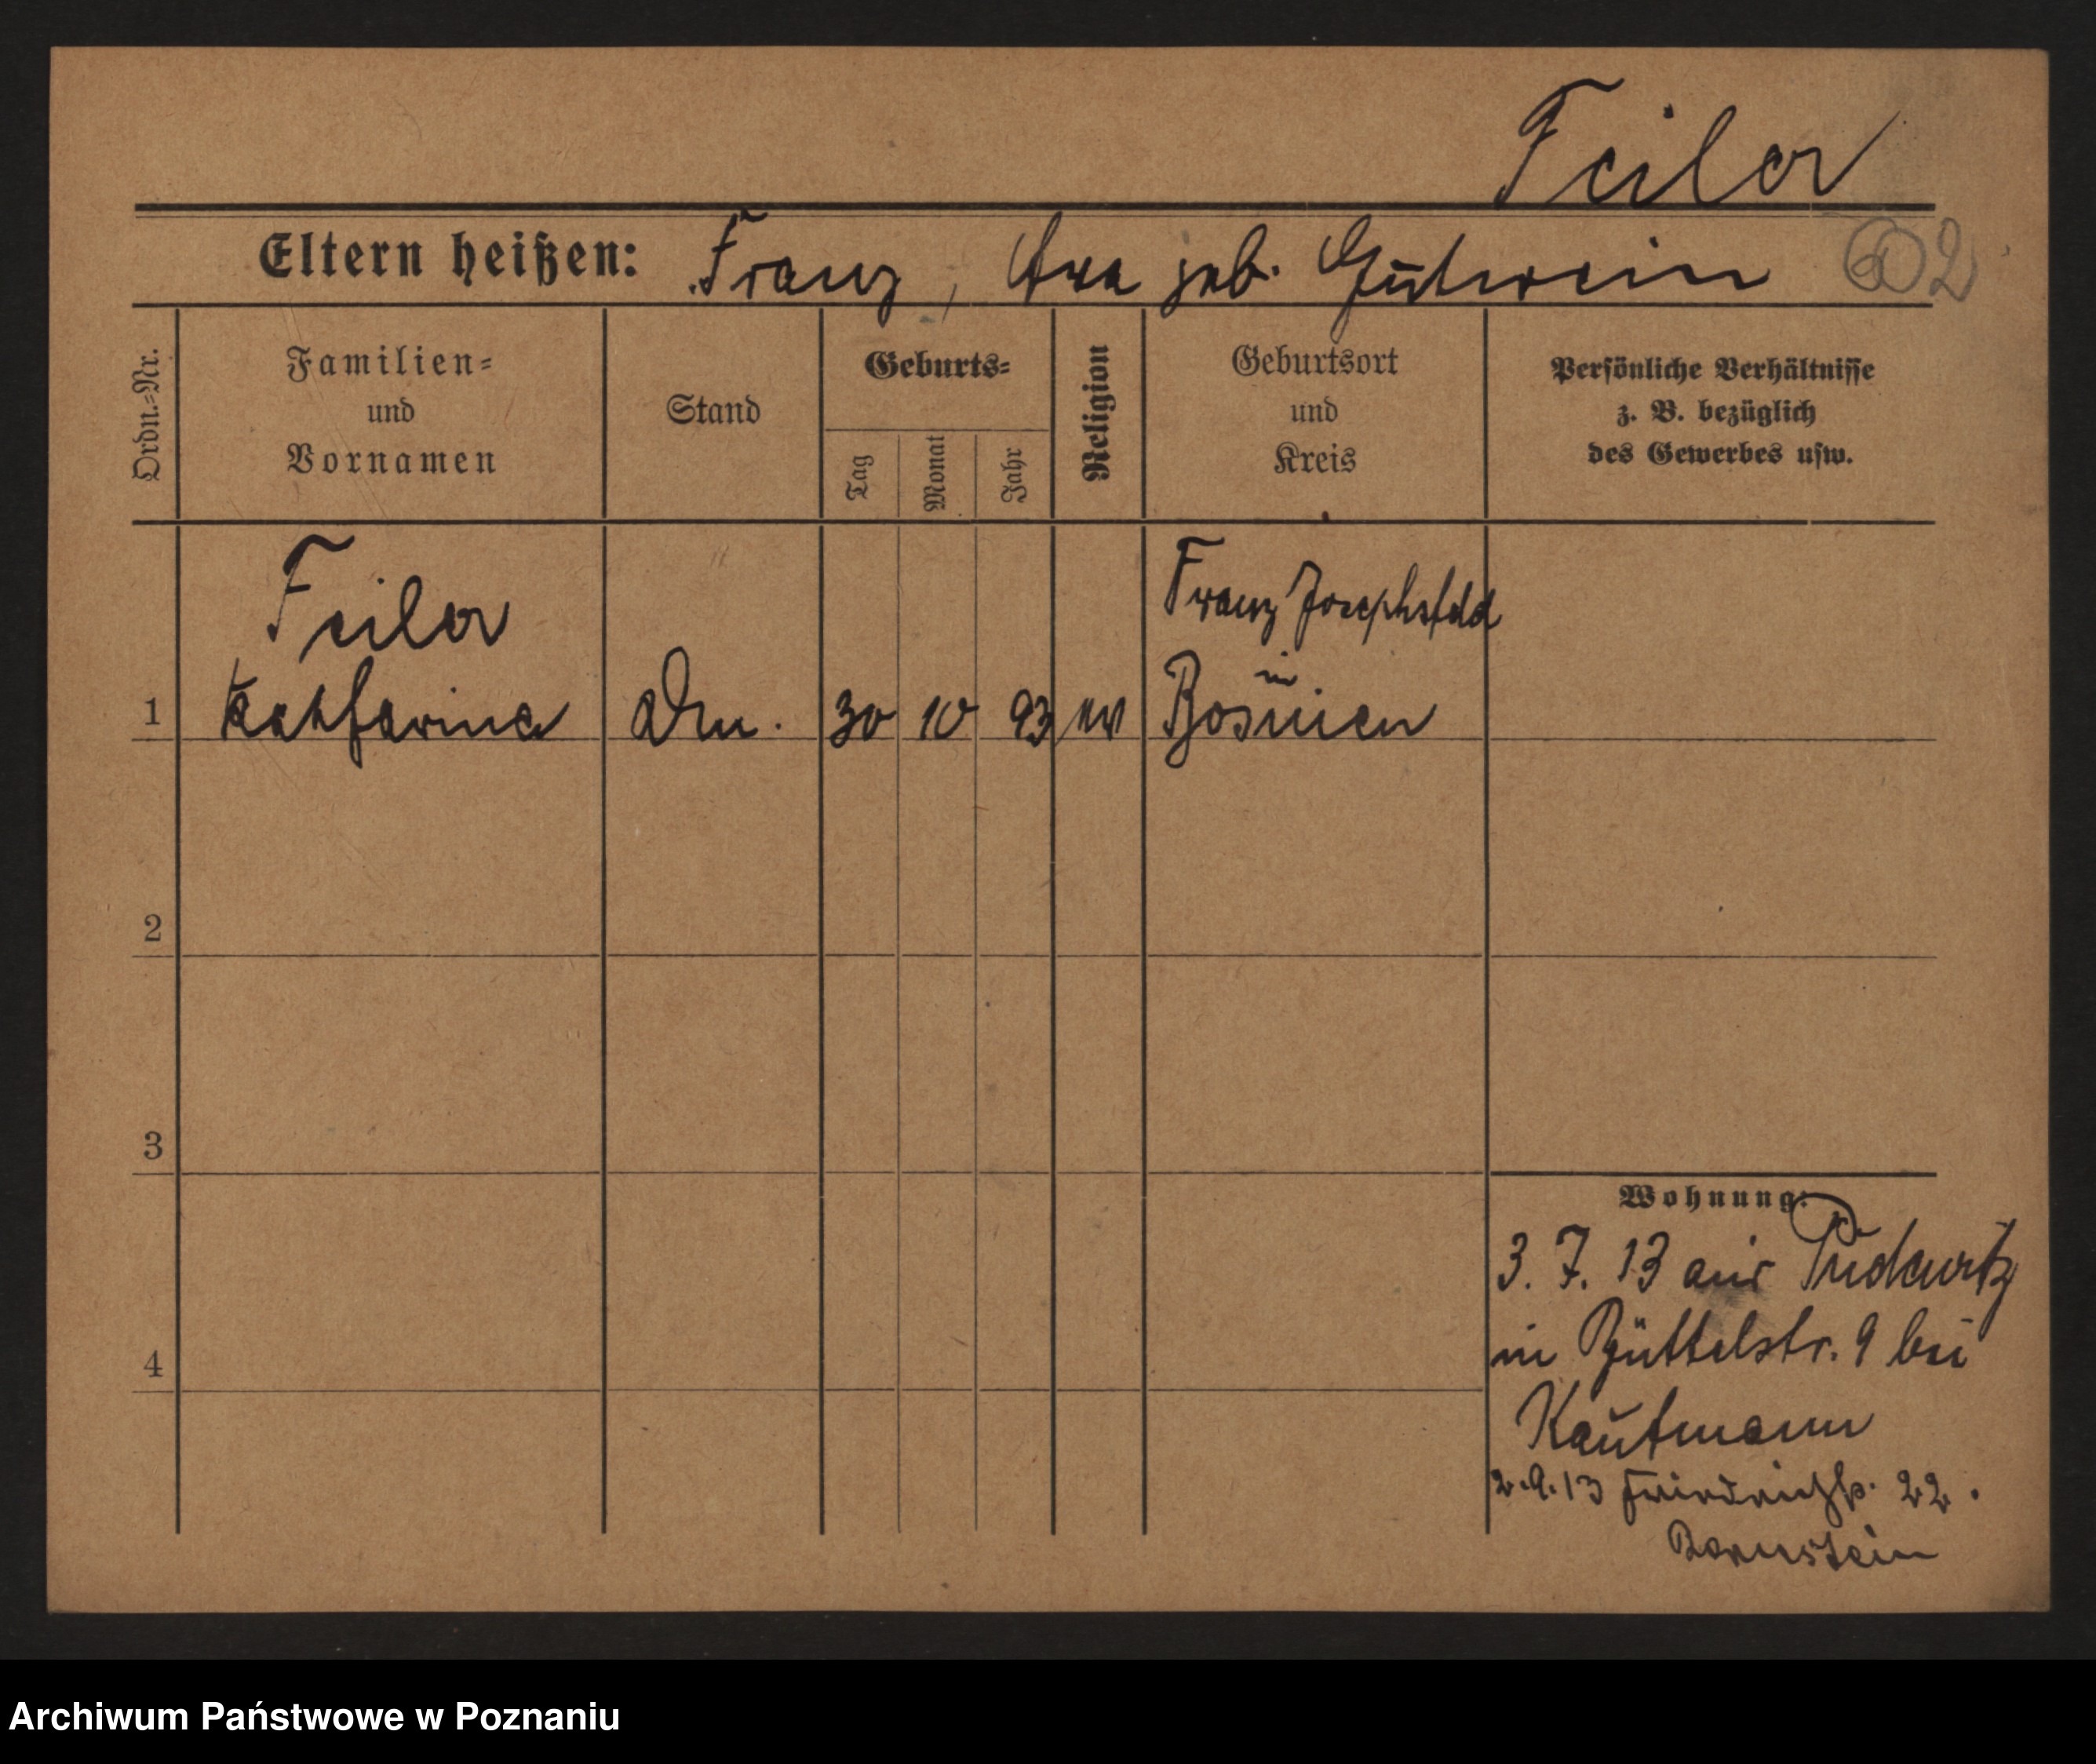 Feiler
Eltern heißen: Franz, Eva geb. Gutwein
602
Ordn.-Nr.
Familien-
und
Vornamen
Stand
Geburts-
Tag
Monat
Jahr
Religion
Geburtsort
und
Kreis
Persönliche Verhältnisse
z. B. bezüglich
des Gewerbes usw.
Feiler Franz Josephsfeld
in
1 Katharina Dm. 30 10 93 ev Bosnien
2
3
Wohnung:
3. 7. 13 aus Pudewitz
4 in Büttelstr. 9 bei
Kaufmann
2.9.13 Friedrichstr. 22.
Bernstein
Archiwum Państwowe w Poznaniu